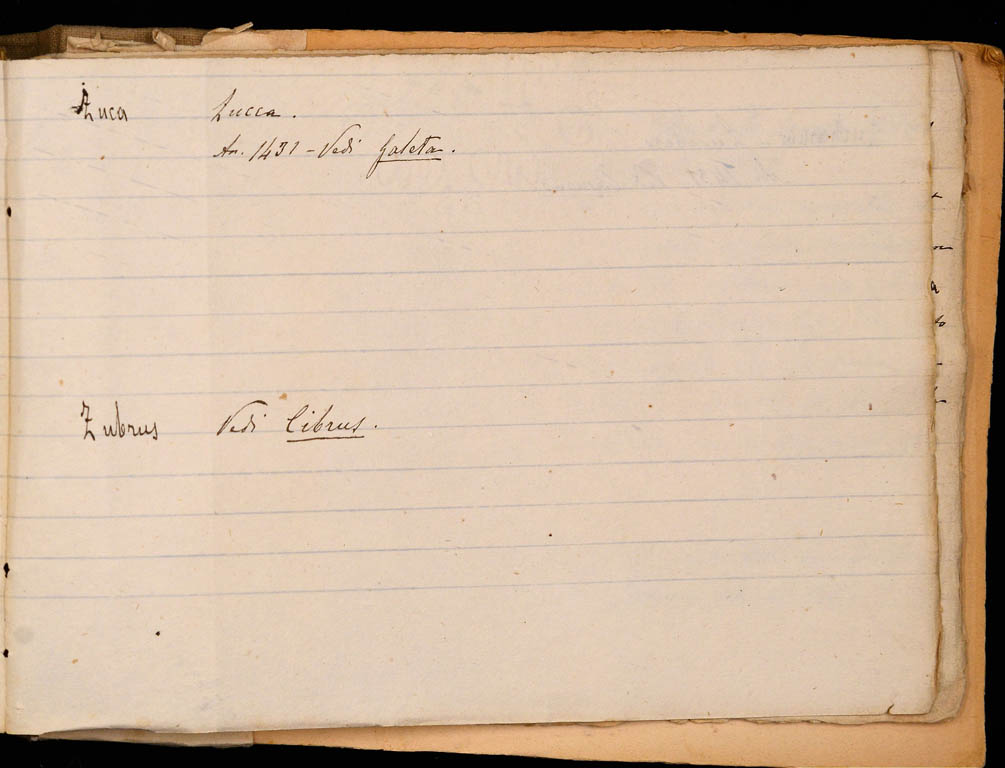 Zuca Zucca.
An. 1431 - Vedi Galeta.
Zubrus Vedi Cibrus.